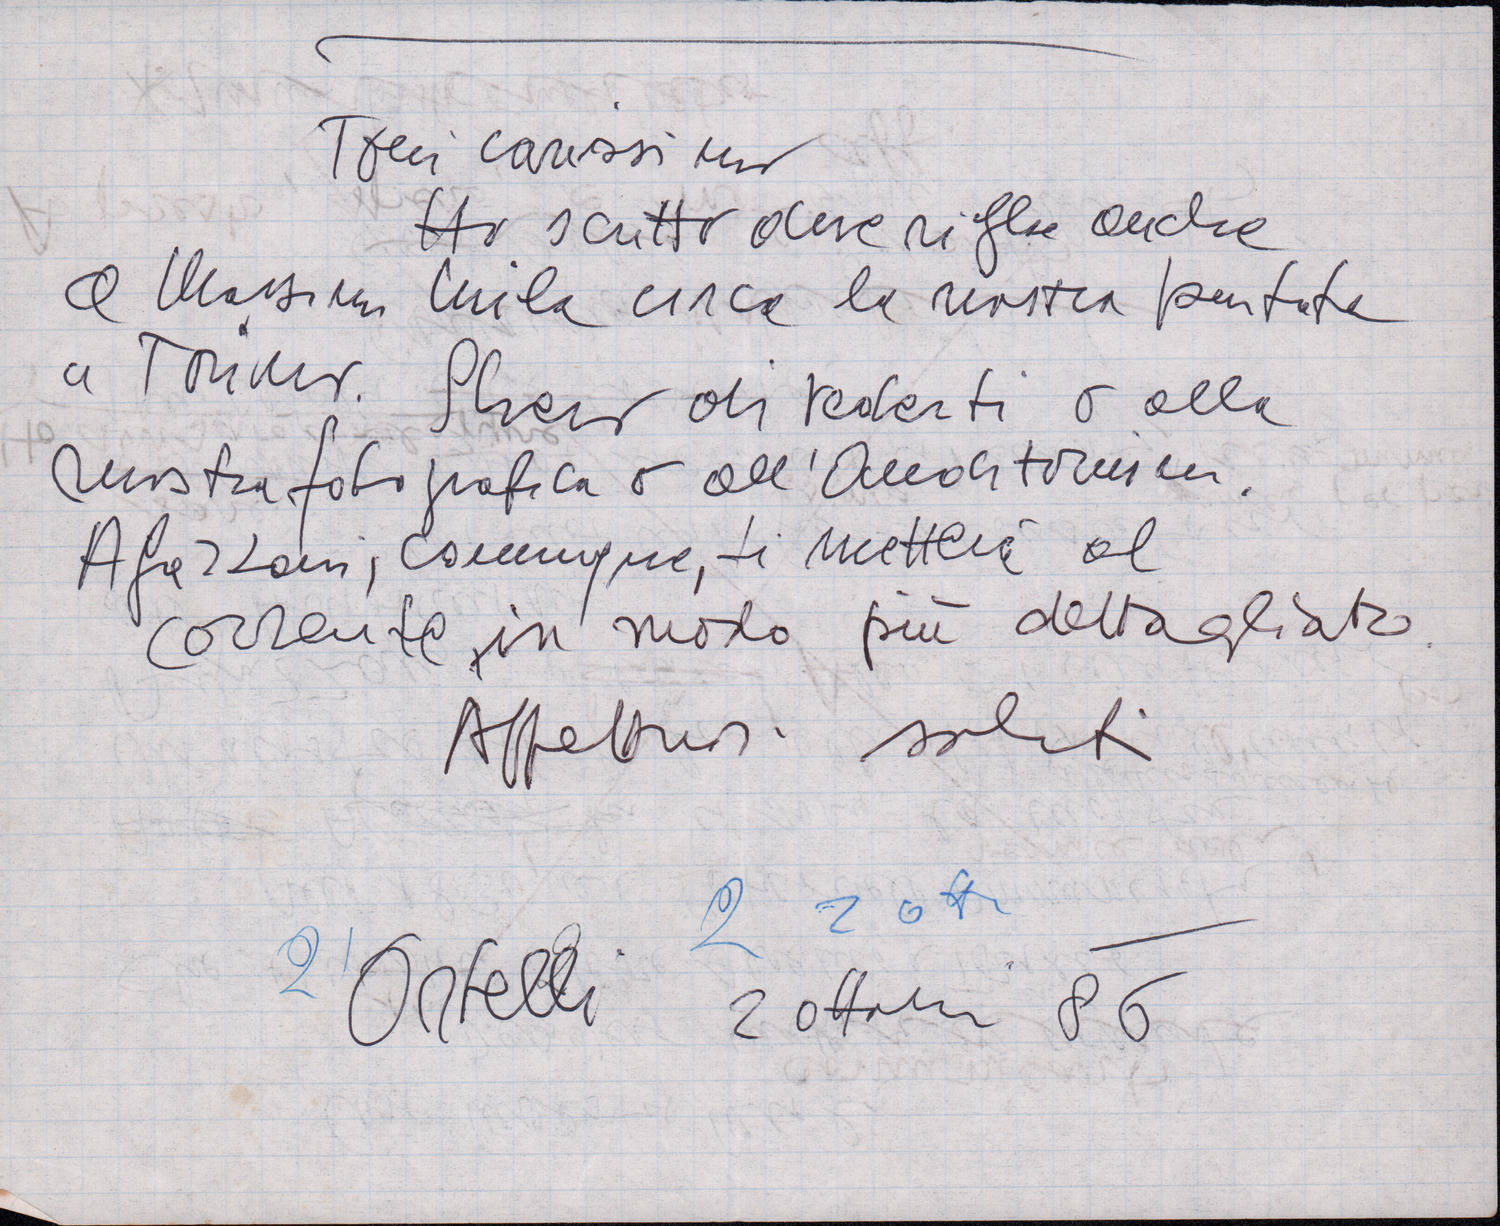 Toni carissimo
Ho scritto due righe anche
a Massimo Mila circa la nostra puntata
a Torino. Spero di vederti o alla
mostra fotografica o all'Auditorium.
Agazzani, comunque, ti metterà al
corrente, in modo più dettagliato.
Affettuosi saluti
2 2 ott
2' Ortelli 2 ottobre 86